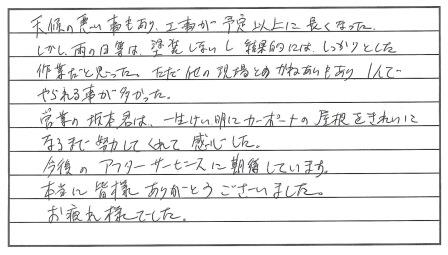 天候の悪い事もあり、工事が予定以上に長くなった。
しかし、雨の日等は、塗装しないし結果的には、しっかりとした
作業だと思った。ただ他の現場とのかねあいもあり1人で
やられる事が多かった。
営業の坂本君は、一生けい明にカーポートの屋根をきれいに
なるまで努力してくれて感心した。
今後のアフターサービスに期待しています。
本当に皆様ありがとうございました。
お疲れ様でした。